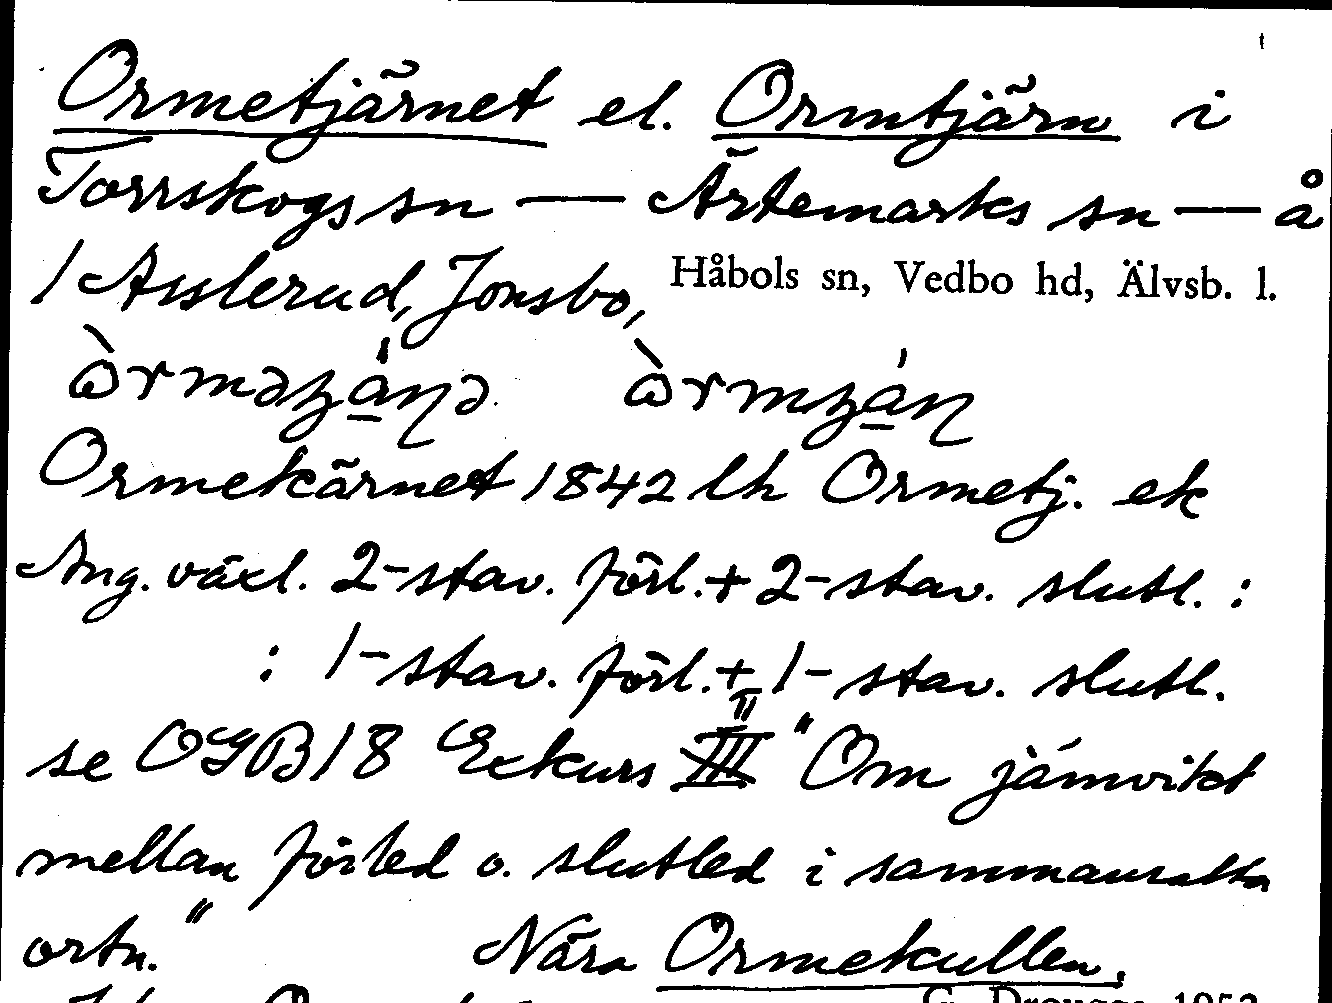 Ormetjärnet el. Ormtjärn i
Torrskogs sn — Ärtemarks sn — å
/ Asslerud, Jonsbo, Håbols sn, Vedbo hd, Älvsb. l.
Ormekärnet 1842 lh Ormetj. ek
Ang. växl. 2-stav. förl. + 2-stav. slutl. :
: 1-stav. förl. + 1-stav. slutl.
se OGB 18 Exkurs II "Om jämvikt
mellan förled o. slutled i sammansatta
ortn." Nära Ormekullen.